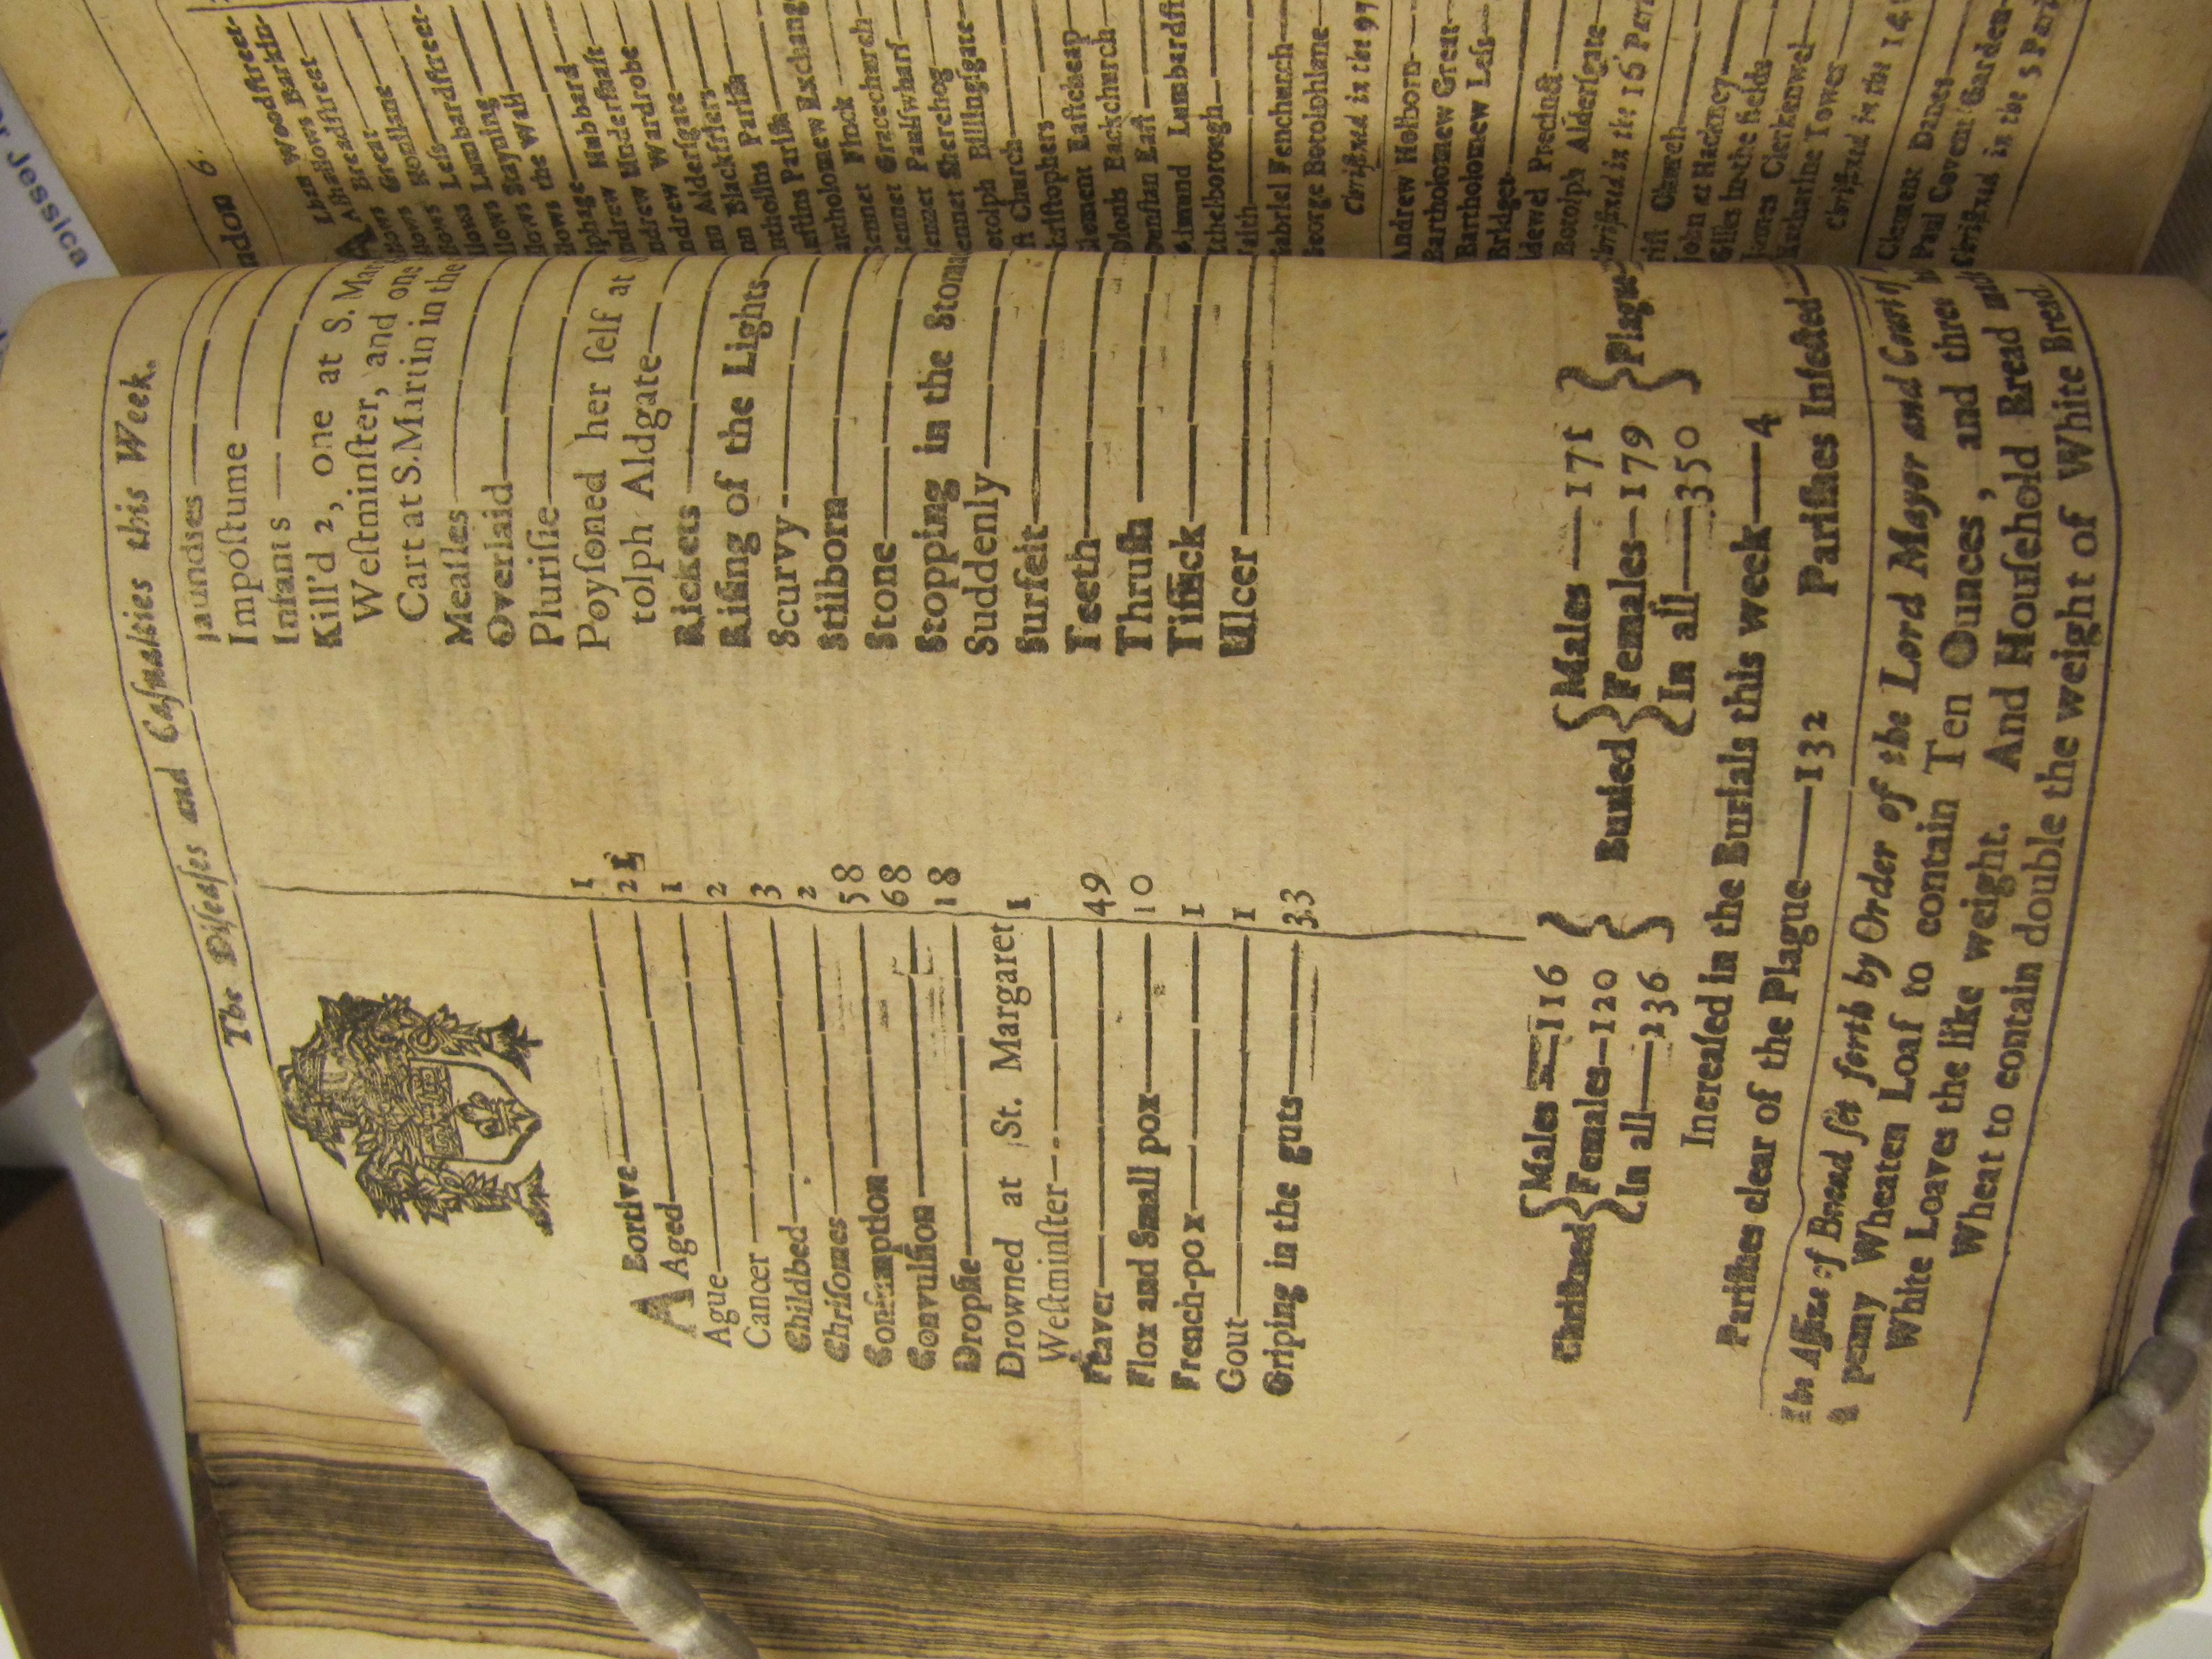 The Diseaſes and Caſualties this Week.
ABortive 1
Aged 21
Ague 1
Cancer 2
Childbed 3
Chriſomes 2
Conſumption 58
Convulſion 68
Dropſie 18
Drowned at St. Margaret
Weſtminſter 1
Feaver 49
Flox and Small pox 10
French-pox 1
Gout 1
Griping in the guts 33
Jaundies
Impoſtume
Infants
Kill'd 2, one at S. Mar
Weſtminſter, and one
Cart at S. Martin in the
Meaſles
Overlaid
Pluriſie
Poyſoned her ſelf at
tolph Aldgate
Rickets
Riſing of the Lights
Scurvy
Stilborn
Stone
Stopping in the Stoma
Suddenly
Surfeit
Teeth
Thruſh
Tiſſick
Ulcer
Chriſtned { Males 116
Females 120
In all 236 }
Buried { Males 171
Females 179
In all 350 } Plague
Increaſed in the Burials this week 4
Pariſhes clear of the Plague 132 Pariſhes Infected
The Aſſize of Bread ſet forth by Order of the Lord Mayor and Court of
A penny Wheaten Loaf to contain Ten Ounces, and three
White Loaves the like weight. And Houſehold Bread
Wheat to contain double the weight of White Bread.
ndon 6
Lban Woodſtreet
Alhallows Barkin
Breadſtreet
Great
Honilane
Leſs
Lumbardſtreet
Stayning
the Wall
Hubbard
Underſhaft
Wardrobe
Alderſgate
Blackfriers
Pariſh
Pariſh
Exchang
Finck
Gracechurch
Paulſwharf
Sherehog
Billingſgate
Church
Eaſtcheap
Backchurch
Eaſt
Lumbardſt
Ethelborough
Faith
Gabriel Fenchurch
George Botolphlane
Chriſtned in the 97
Andrew Holborn
Bartholomew Great
Bartholomew Leſs
Bridget
Bridewel Precinct
Botolph Alderſgate
Chriſtned in the 16 Pari
Chriſt Church
John at Hackney
Giles in the fields
James Clerkenwel
Katharine Tower
Chriſtned in the 14
Clement Danes
Paul Covent Garden
Chriſtned in the 5 Pari
or Jessica